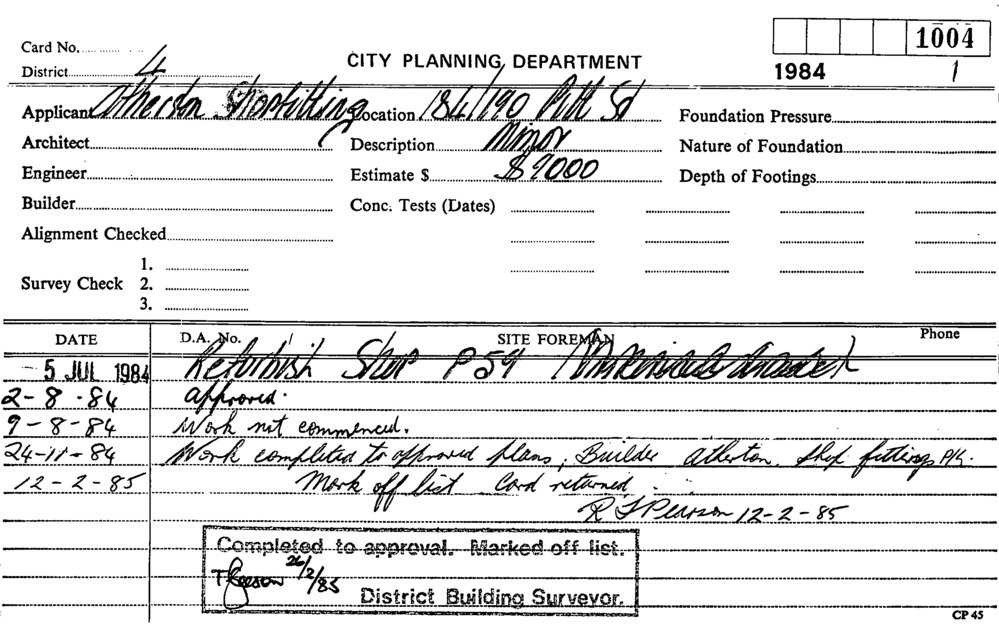 Card No.
1004
District 4
CITY PLANNING DEPARTMENT
1984 1
Applicant Atherton Shopfitting Location 184/190 Pitt St Foundation Pressure
Architect Description Minor Nature of Foundation
Engineer Estimate $ $9000 Depth of Footings
Builder Conc. Tests (Dates)
Alignment Checked
1.
Survey Check 2.
3.
DATE D.A. No. SITE FOREMAN Phone
5 JUL 1984 Refurbish Shop P59
2-8-84 Approved.
9-8-84 Work not commenced.
24-11-84 Work completed to approved plans; Builder Atherton Shop fittings P/L.
12-2-85 Mark off list Card returned
R J Pearson 12-2-85
Completed to approval. Marked off list.
26/2/85
District Building Surveyor.
CP 45